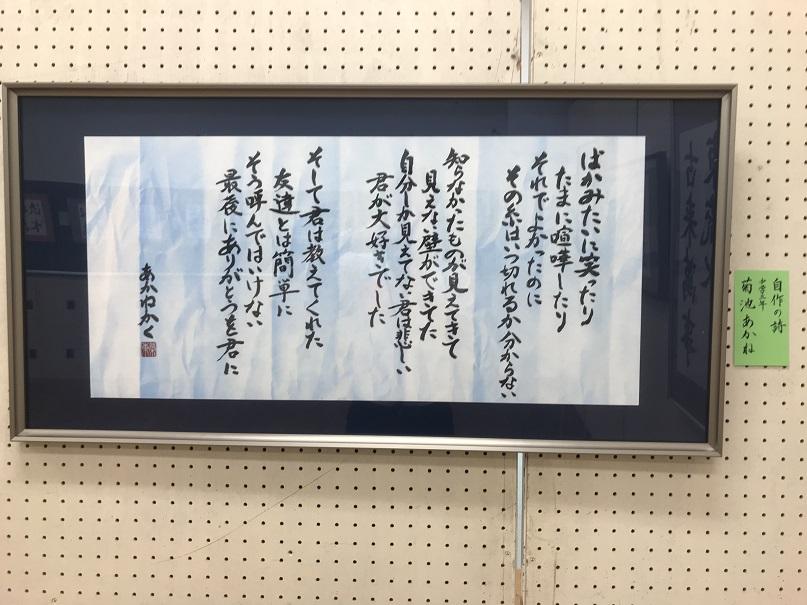 ばかみたいに笑ったり
たまに喧嘩したり
それでよかったのに
その糸はいつ切れるか分からない
知らなかったものが見えてきて
見えない壁ができてた
自分しか見えてない君は悲しい
君が大好きでした
そして君は教えてくれた
友達とは簡単に
そう呼んではいけない
最後にありがとうを君に
あかねかく
自作の詩
中学三年
菊池あかね